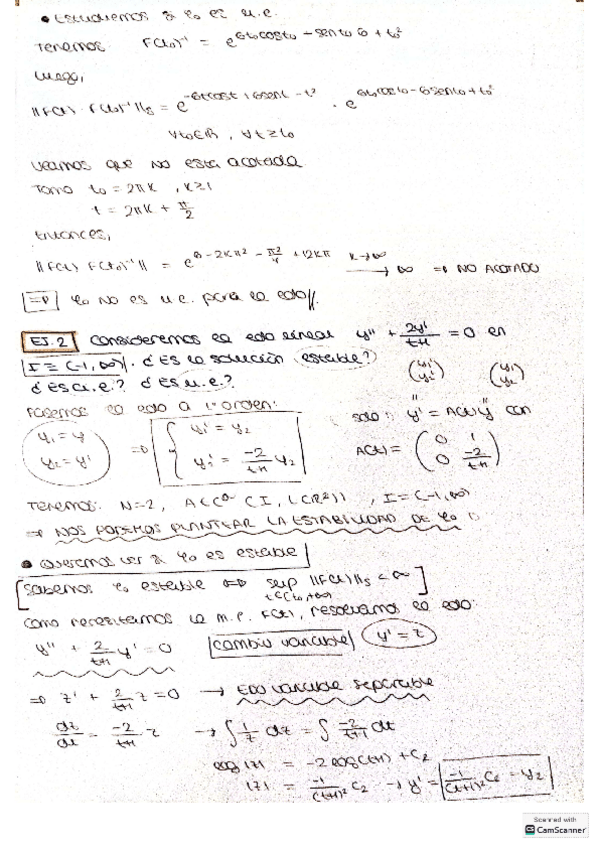 • Estudiemos si φ₀ es u.e.
Tenemos: F(t₀)⁻¹ = e^{6t₀cost₀ - sent₀ 6 + t₀²}
Luego,
||F(t) · F(t₀)⁻¹||s = e^{-6tcost + 6sent - t²} · e^{6t₀cost₀ - 6sent₀ + t₀²}
∀t₀∈ℝ, ∀t≥t₀
Veamos que NO está acotada
Tomo t₀ = 2πk, k≥1
t = 2πk + π/2
Entonces,
||F(t) F(t₀)⁻¹|| = e^{6 - 2kπ² - π²/4 + 12kπ} k→∞ → ∞ ⇒ NO ACOTADO
⇒ φ₀ NO es u.e. para la edo//
EJ. 2 Consideremos la edo lineal y'' + 2y'/(t+1) = 0 en
I = (-1, ∞). ¿Es la solución estable?
¿Es a.e.? ¿Es u.e.? (y₁' y₂') (y₁ y₂)
Pasemos la edo a 1er orden:
y₁ = y
y₂ = y'
⇒ { y₁' = y₂
y₂' = -2/(t+1) y₂
y' = A(t) y con
A(t) = (0 1
0 -2/(t+1))
Tenemos: N=2, A∈C⁰ (I, L(ℝ²)), I = (-1, ∞)
⇒ NOS PODEMOS PLANTEAR LA ESTABILIDAD DE φ₀
• Queremos ver si φ₀ es estable
[Sabemos φ₀ estable ⇔ sup ||F(t)||s < ∞]
t∈(t₀,+∞)
Como necesitamos la m.f. F(t), resolvamos la edo:
y'' + 2/(t+1) y' = 0 cambio variable y' = z
⇒ z' + 2/(t+1) z = 0 → EDO variable separable
dz/dt = -2/(t+1) z → ∫ 1/z dz = ∫ -2/(t+1) dt
log|z| = -2log(t+1) + C₂
|z| = -1/(t+1)² C₂ → y' = -1/(t+1)² C₂ = y₂
Scanned with
CS CamScanner